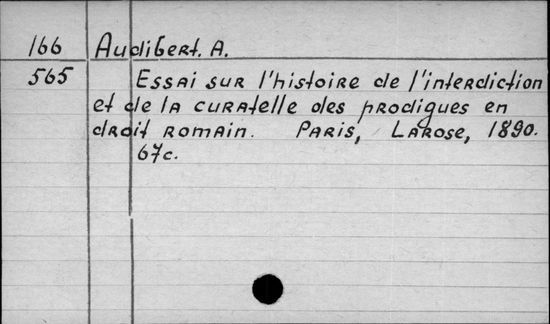 166 Audibert. A.
565 Essai sur l'histoire de l'interdiction
et de la curatelle des prodigues en
droit romain. Paris, Larose, 1890.
67c.